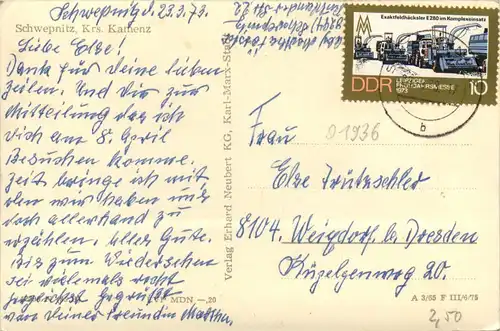 Schwepnitz d. 23.3.73.
Schwepnitz, Krs. Kamenz
Liebe Else!
Dank für deine lieben
Zeilen. Und dir zur
Mitteilung das ich
dich am 8. April
Besuchen komme.
Zeit bringe ich mit
den wir haben uns
doch allerhand zu
erzählen. Alles Gute.
Bis zum Wiedersehen
sei vielemals recht
herzlichst Gegrüßt
von deiner Freundin Martha.
MDN -,20
Verlag Erhard Neubert KG, Karl-Marx-Stadt
Exaktfeldhäcksler E 280 im Komplexeinsatz
DDR
LEIPZIGER
FRÜHJAHRSMESSE
1973
10
b
01936
Frau
Else Trützschler
8104. Weixdorf b/ Dresden
Kügelgenweg 20.
A 3/65 F III/6/75
2,50